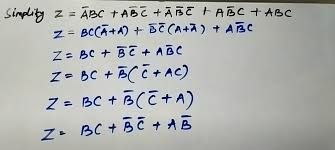 Simplify Z = A̅BC + AB̅C̅ + A̅B̅C̅ + AB̅C + ABC
Z = BC(A̅+A) + B̅C̅(A+A̅) + AB̅C
Z = BC + B̅C̅ + AB̅C
Z = BC + B̅(C̅ + AC)
Z = BC + B̅(C̅ + A)
Z = BC + B̅C̅ + AB̅